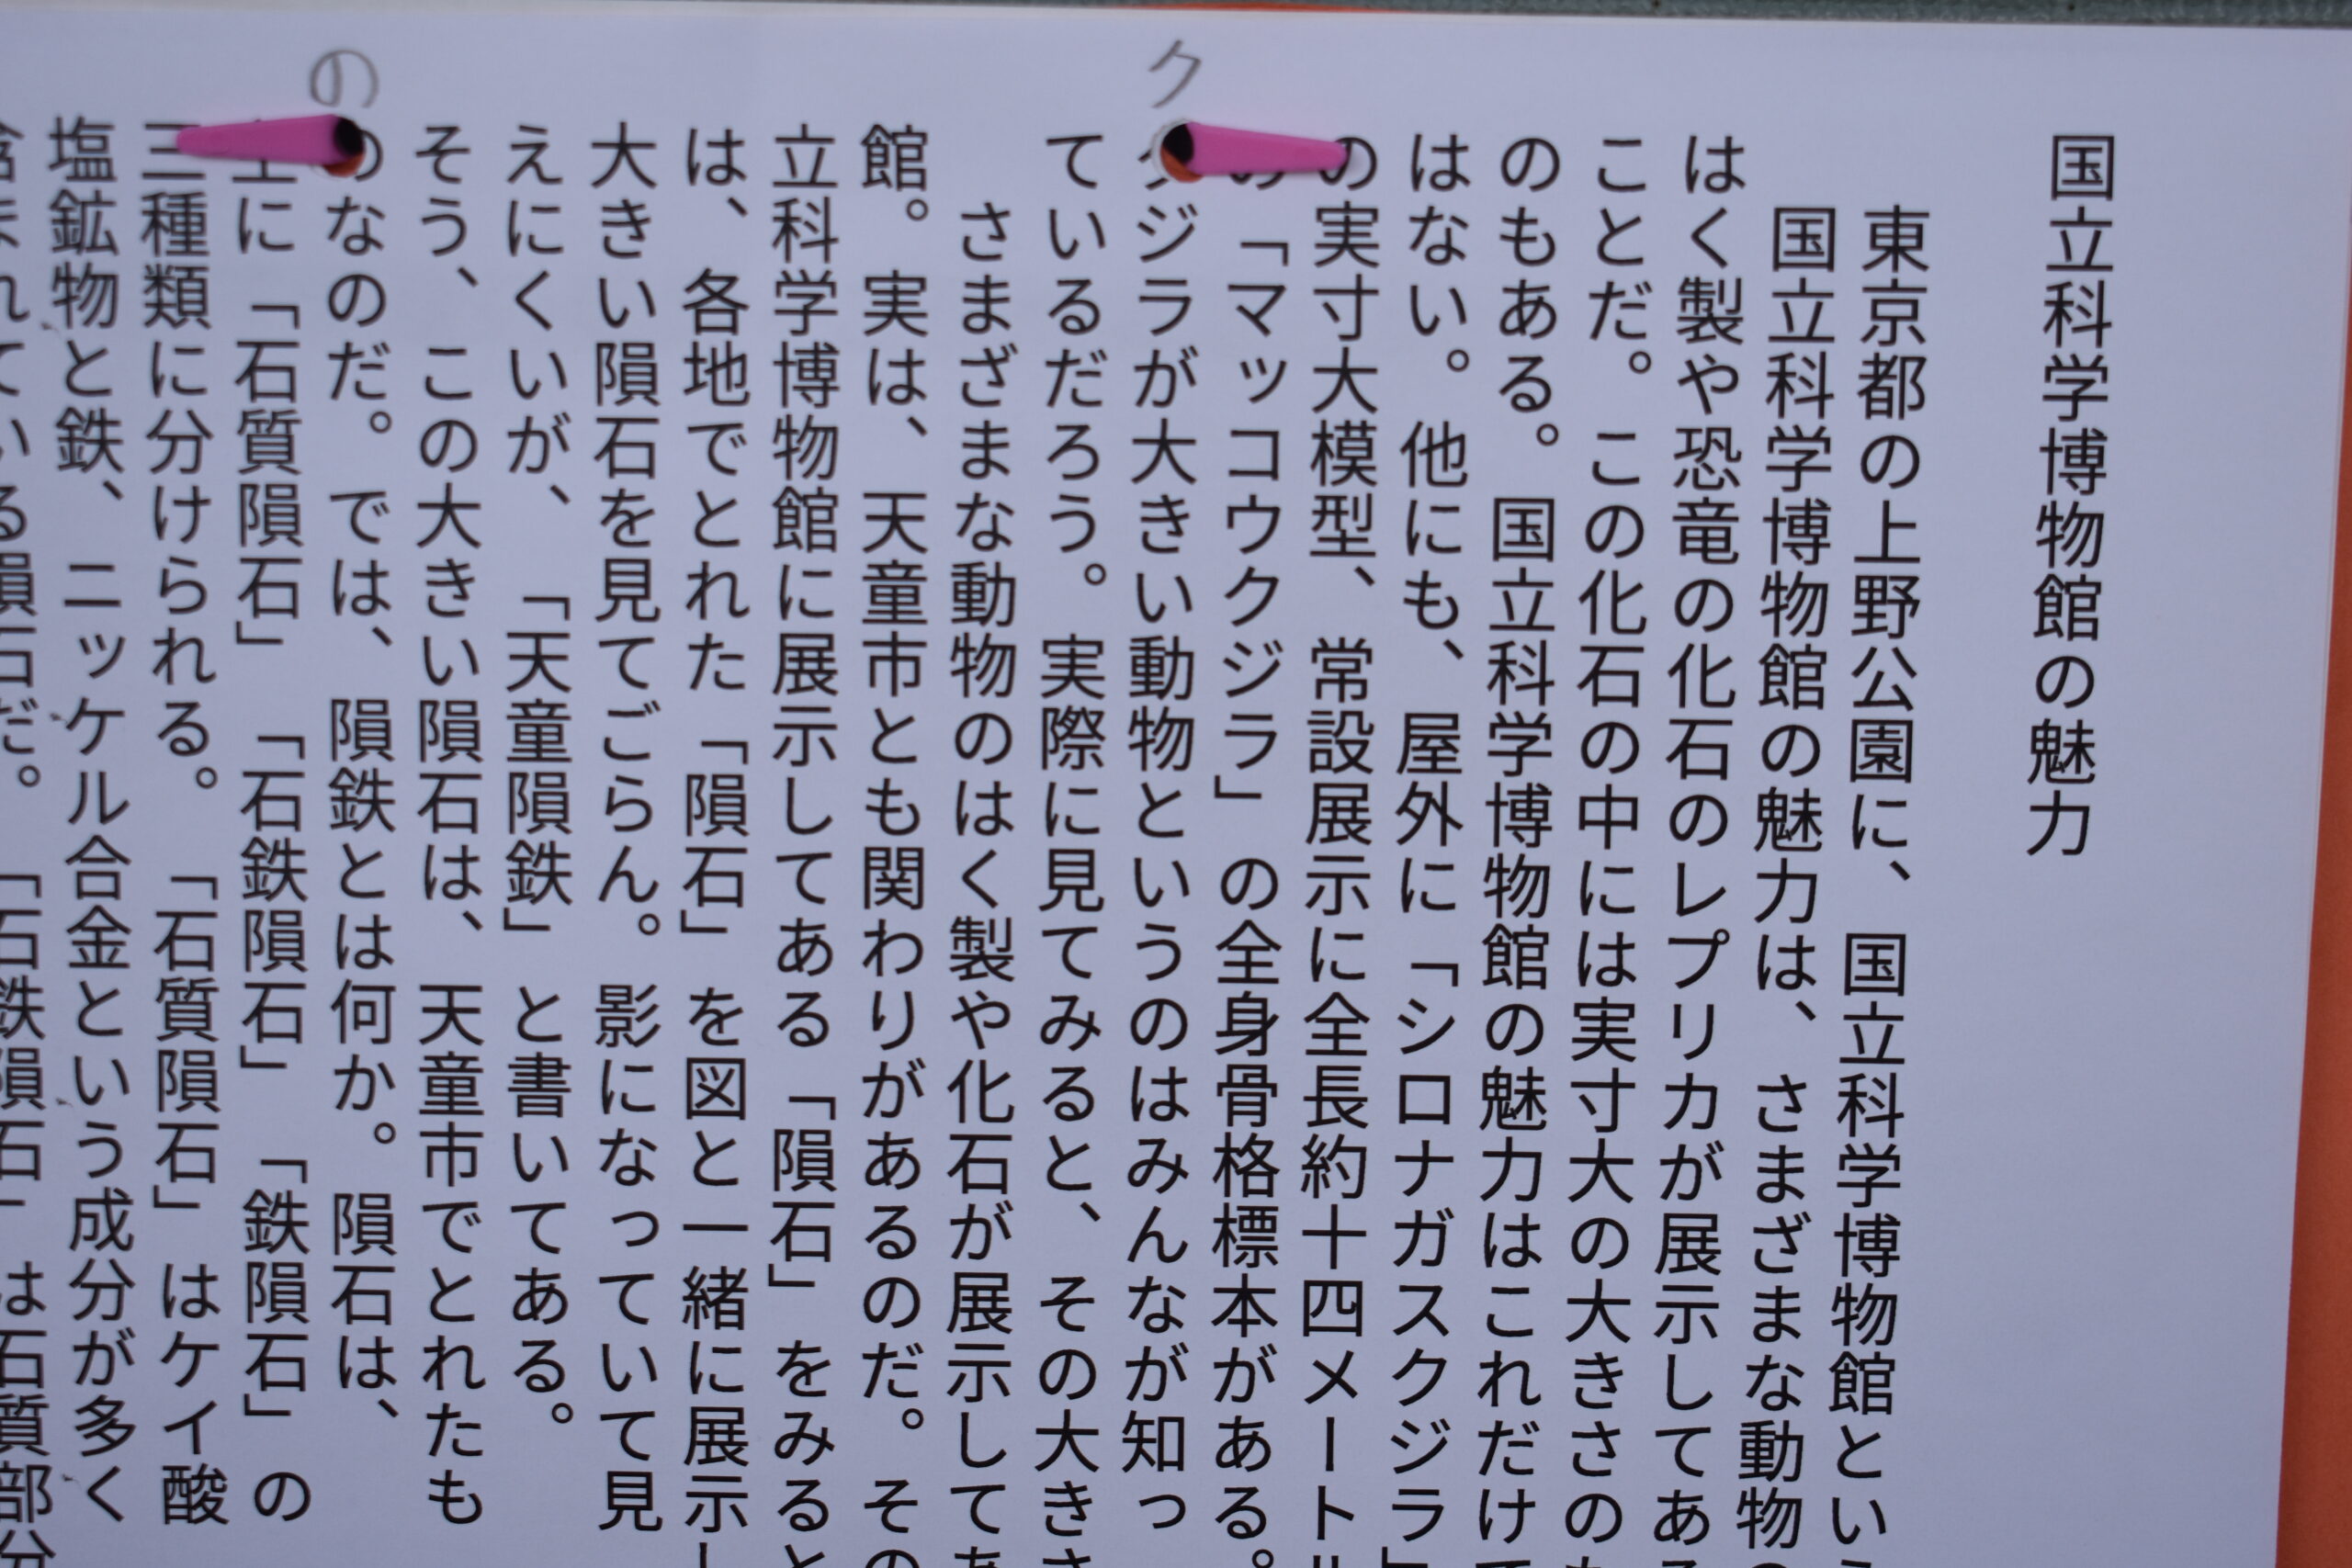 国立科学博物館の魅力
東京都の上野公園に、国立科学博物館とい
国立科学博物館の魅力は、さまざまな動物
はく製や恐竜の化石のレプリカが展示してある
ことだ。この化石の中には実寸大の大きさの
のもある。国立科学博物館の魅力はこれだけで
はない。他にも、屋外に「シロナガスクジラ」
の実寸大模型、常設展示に全長約十四メートル
の「マッコウクジラ」の全身骨格標本がある。
クジラが大きい動物というのはみんなが知っ
ているだろう。実際に見てみると、その大きさ
さまざまな動物のはく製や化石が展示してあ
館。実は、天童市とも関わりがあるのだ。その
立科学博物館に展示してある「隕石」をみると
は、各地でとれた「隕石」を図と一緒に展示し
大きい隕石を見てごらん。影になっていて見
えにくいが、「天童隕鉄」と書いてある。
そう、この大きい隕石は、天童市でとれたも
のなのだ。では、隕鉄とは何か。隕石は、
主に「石質隕石」「石鉄隕石」「鉄隕石」の
三種類に分けられる。「石質隕石」はケイ酸
塩鉱物と鉄、ニッケル合金という成分が多く
含まれている隕石だ。「石鉄隕石」は石質部分
ク
の